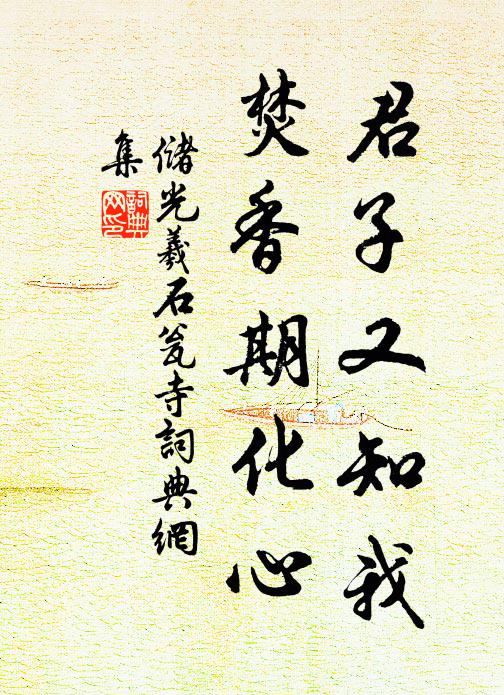 君子又知我
焚香期化心
儲光羲石瓮寺詞典網
集
詞典
网印